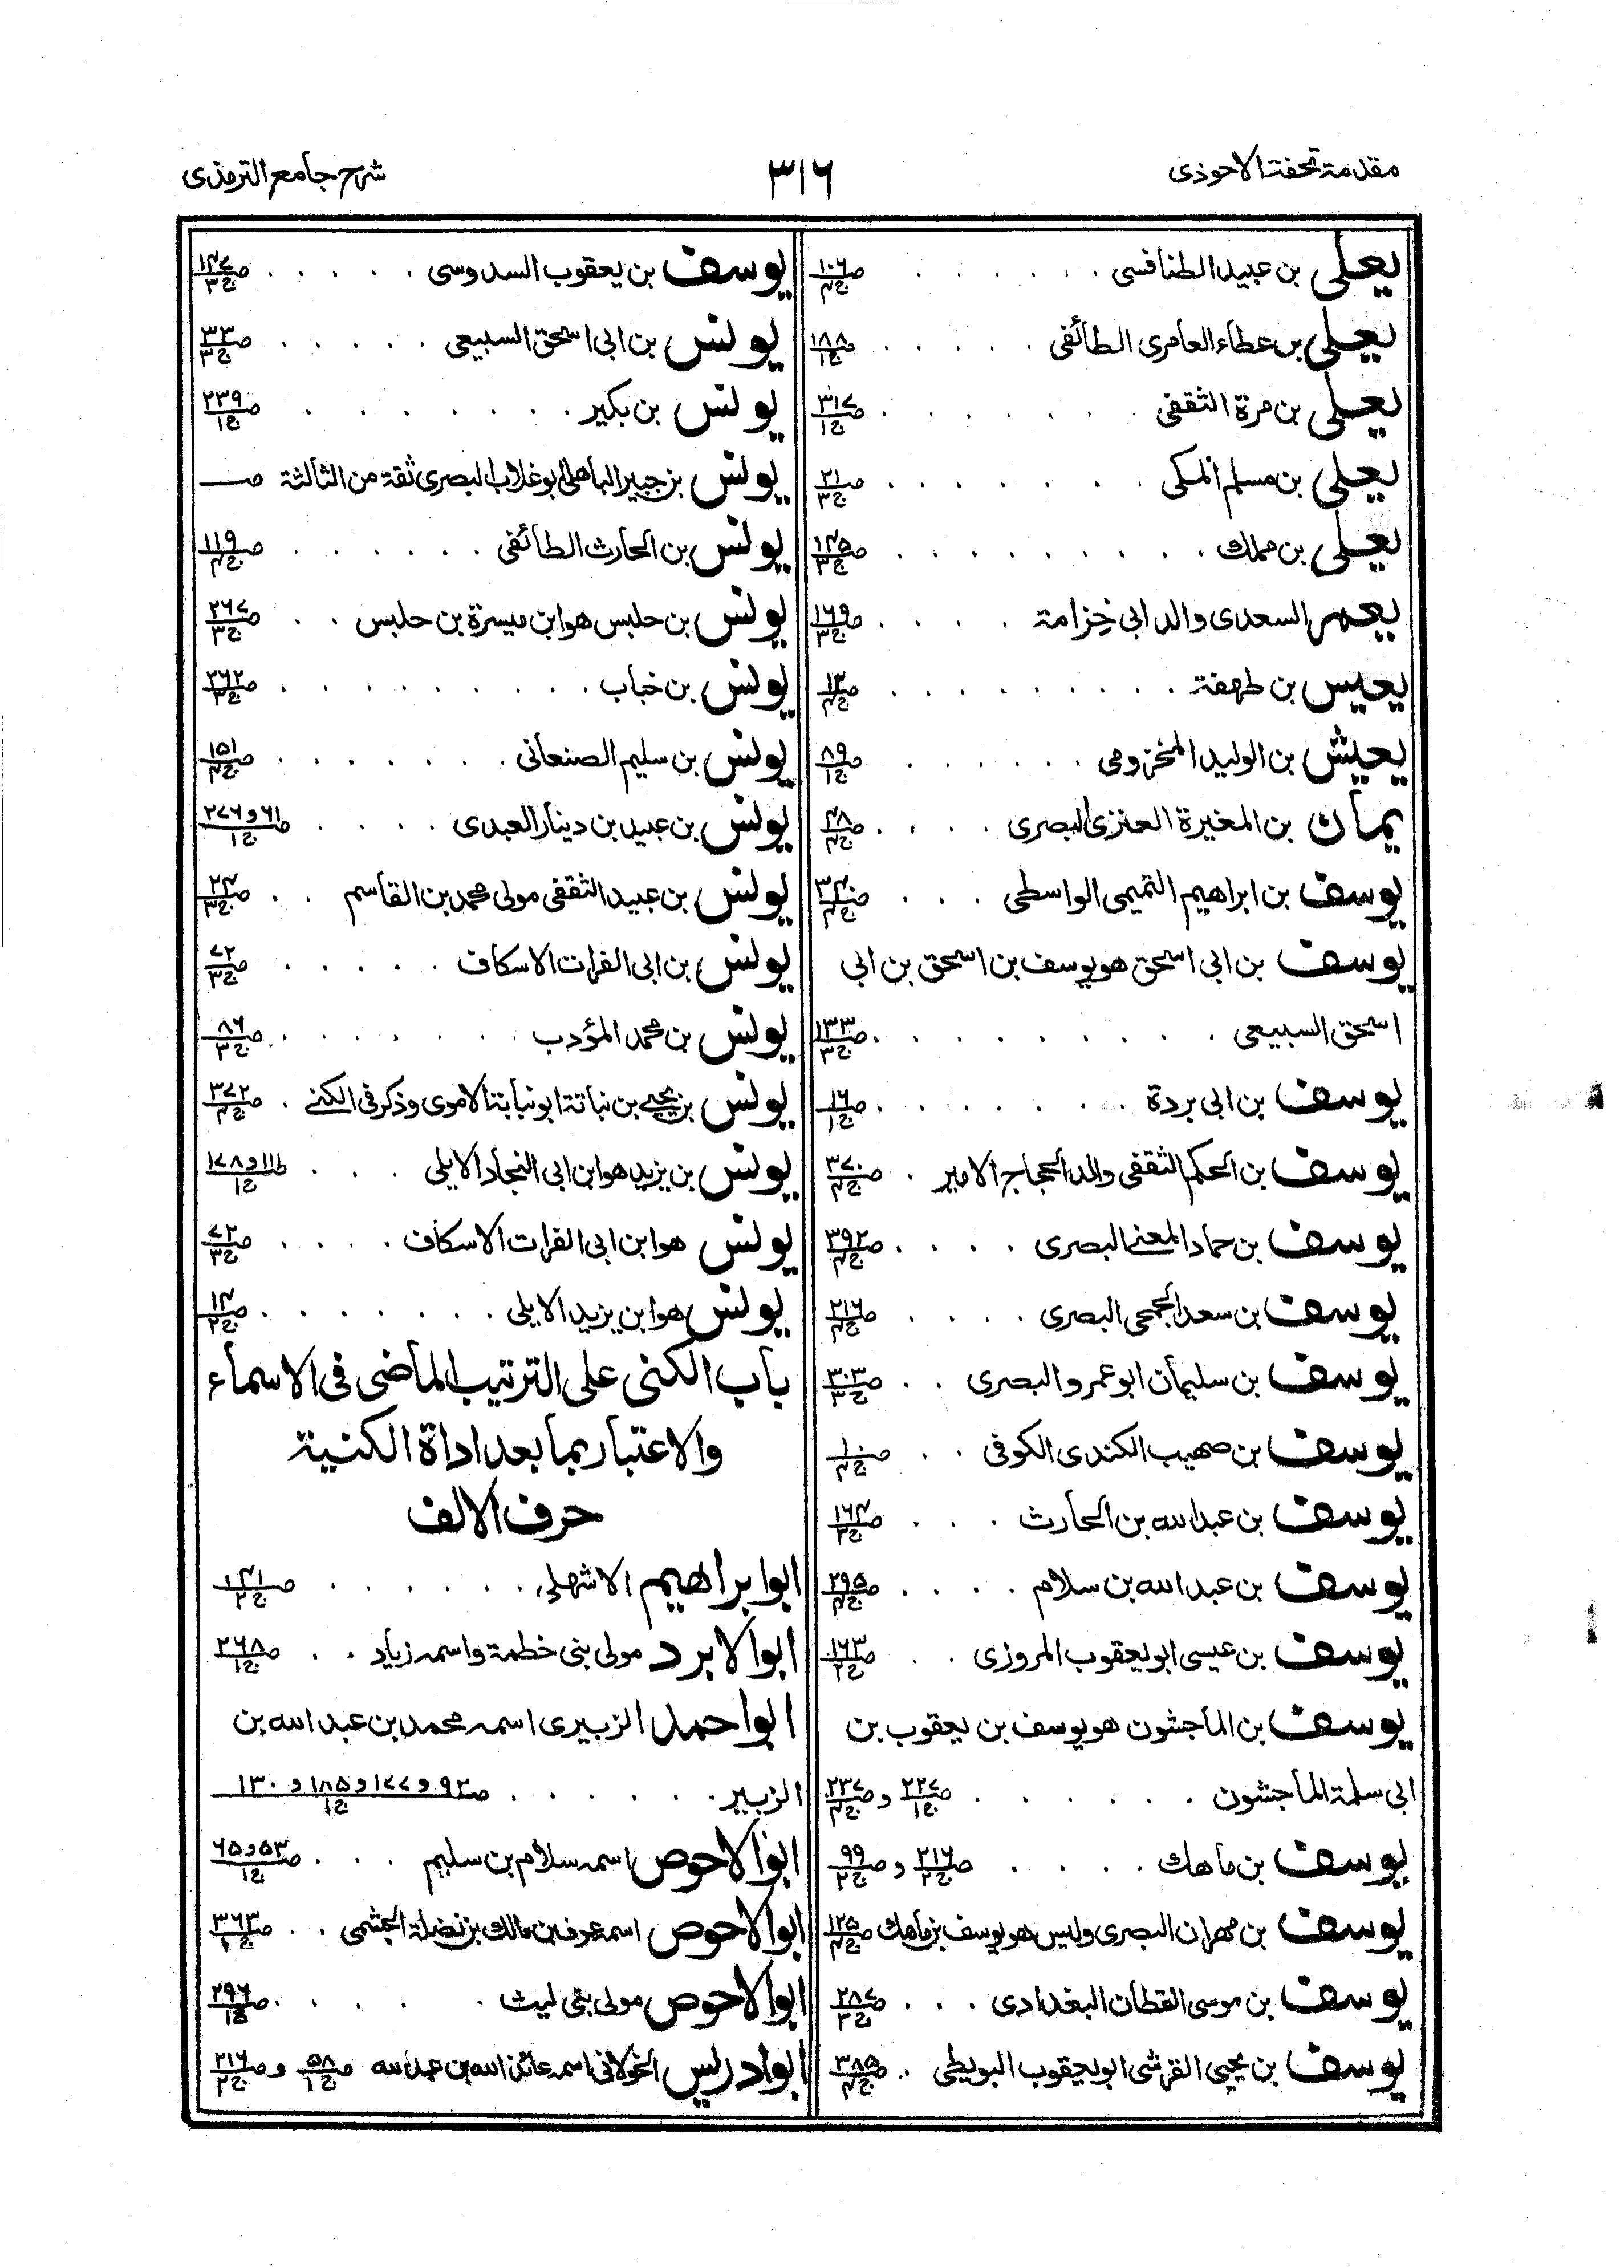 مقدمة تحفة الاحوذى
٣١٦
شرح جامع الترمذى
يعلى بن عبيد الطنافسى . . . . . . ص١٠٦ ج٤
يعلى بن عطاء العامرى الطائفى . . . . . ص١٨٨ ج١
يعلى بن مرة الثقفى . . . . . . ص٣١٧ ج١
يعلى بن مسلم المكى . . . . . . ص٢١ ج٣
يعلى بن مملك . . . . . . . ص١٢٥ ج٣
يعمر السعدى والد ابى خزامة . . . . ص١٦٩ ج٣
يعيش بن طهفة . . . . . . . . ص١٢ ج٤
يعيش بن الوليد المخزومى . . . . . . ص٨٩ ج١
يمان بن المغيرة العنزى البصرى . . . . ص٤٨ ج٤
يوسف بن ابراهيم التميمى الواسطى . . . ج٤
يوسف بن ابى اسحق هو يوسف بن اسحق بن ابى
اسحق السبيعى . . . . . . . . ص١٣٣ ج٣
يوسف بن ابى بردة . . . . . . . ص١٦ ج١
يوسف بن الحكم الثقفى والد الحجاج الامير . ص٣٧٠ ج٤
يوسف بن حماد المعنى البصرى . . . . ص٣٩٢ ج٤
يوسف بن سعد الجمحى البصرى . . . . ص٢١٦ ج٤
يوسف بن سليمان ابو عمرو البصرى . . ص٣٠٣ ج٣
يوسف بن صهيب الكندى الكوفى . . ص١٠ ج٤
يوسف بن عبد الله بن الحارث . . . . ص١٦٤ ج٣
يوسف بن عبد الله بن سلام . . . . ص٢٩٥ ج٤
يوسف بن عيسى ابو يعقوب المروزى . . ص١٦٣ ج٢
يوسف بن الماجشون هو يوسف بن يعقوب بن
ابى سلمة الماجشون . . . . . . ص٢٢٧ ج١ و ص٢٣٧ ج٤
يوسف بن ماهك . . . . ص٢١٦ ج٢ و ص٩٩ ج٢
يوسف بن مهران البصرى وليس هو يوسف بن ماهك ص١٢٥ ج٤
يوسف بن موسى القطان البغدادى . . . ص٢٨٧ ج٣
يوسف بن يحيى القرشى ابو يعقوب البويطى . . ص٣٨٥ ج٤
يوسف بن يعقوب السدوسى . . . . . ص١٤٧ ج٣
يونس بن ابى اسحق السبيعى . . . . . ص٣٣ ج٣
يونس بن بكير . . . . . . . ص٢٣٩ ج١
يونس بن جبير الباهلى ابو غلاب البصرى ثقة من الثالثة ص
يونس بن الحارث الطائفى . . . . . . ص١١٩ ج٤
يونس بن حلبس هو ابن ميسرة بن حلبس . . . ص٢٦٧ ج٣
يونس بن خباب . . . . . . . . ص٢٦٢ ج٣
يونس بن سليم الصنعانى . . . . . . ص١٥١ ج٤
يونس بن عبيد بن دينار العبدى . . . . ص٦١ و ٢٧٦ ج١
يونس بن عبيد الثقفى مولى محمد بن القاسم . . ص٢٤ ج٣
يونس بن ابى الفرات الاسكاف . . . . . ص٧٢ ج٣
يونس بن محمد المؤدب . . . . . . . ص٨٦ ج٣
يونس بن يحيى بن نباتة ابو نباتة الاموى وذكر فى الكنى . ص٣٧٢ ج٤
يونس بن يزيد هو ابن ابى النجاد الايلى . . . ص١١ و ١٧٨ ج١
يونس هو ابن ابى الفرات الاسكاف . . . . ص٧٢ ج٣
يونس هو ابن يزيد الايلى . . . . . . . ص١٤ ج٢
باب الكنى على الترتيب الماضى فى الاسماء
والاعتبار بما بعد اداة الكنية
حرف الالف
ابو ابراهيم الاشهلى . . . . . . ص١٤١ ج٢
ابو الابرد مولى بنى خطمة واسمه زياد . . . ص٢٦٨ ج١
ابو احمد الزبيرى اسمه محمد بن عبد الله بن
الزبير . . . . . . ص٩٢ و ١٧٧ و ١٨٥ و ١٣٠ ج١
ابو الاحوص اسمه سلام بن سليم . . . . ص٥٣ و ٦٥ ج١
ابو الاحوص اسمه عوف بن مالك بن نضلة الجشمى . . ص٣٦٣
ابو الاحوص مولى بنى ليث . . . . . ص٢٩٦ ج١
ابو ادريس الخولانى اسمه عائذ الله بن عبد الله ص٥٨ ج١ و ص٢١٦ ج٢